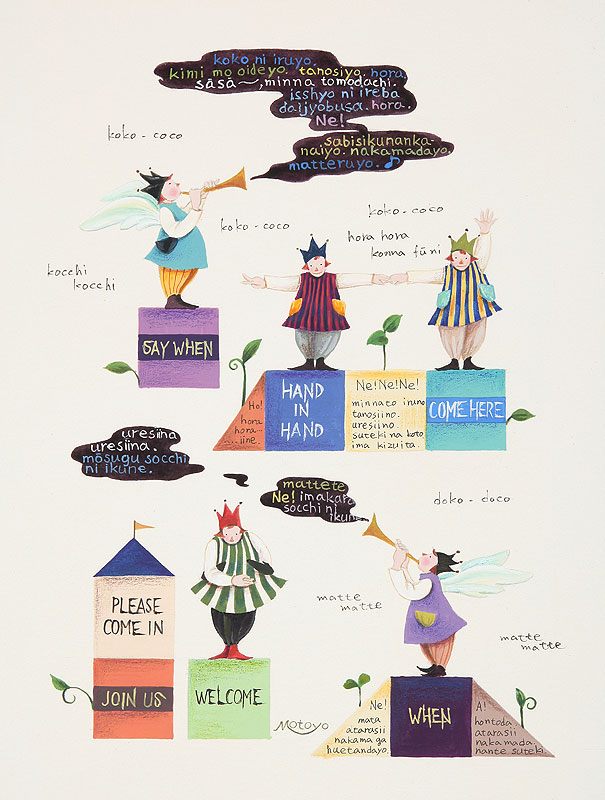 koko ni iruyo.
kimi mo oideyo. tanosiyo. hora
sāsā〜, minna tomodachi.
isshyo ni ireba
daijyobusa. hora.
Ne!
sabisikunanka-
naiyo. nakamadayo
matteruyo. ♪
koko - coco
koko - coco
koko - coco
hora hora
konna fūni
kocchi
kocchi
SAY WHEN
Ho!
hora
hora...
....iine.
HAND
IN
HAND
Ne!Ne!Ne!
minnato iruno
tanosiino.
uresiino.
suteki na koto
ima kizuita.
COME HERE
uresiina
uresiina.
mōsugu socchi
ni ikune.
mattete
Ne! imakara
socchi ni
ikune
doko - doco
PLEASE
COME IN
JOIN US
WELCOME
matte
matte
matte
matte
Motoyo
Ne!
mata
atarasii
nakama ga
huetandayo.
WHEN
A!
hontoda.
atarasii
nakamada.
nante suteki.